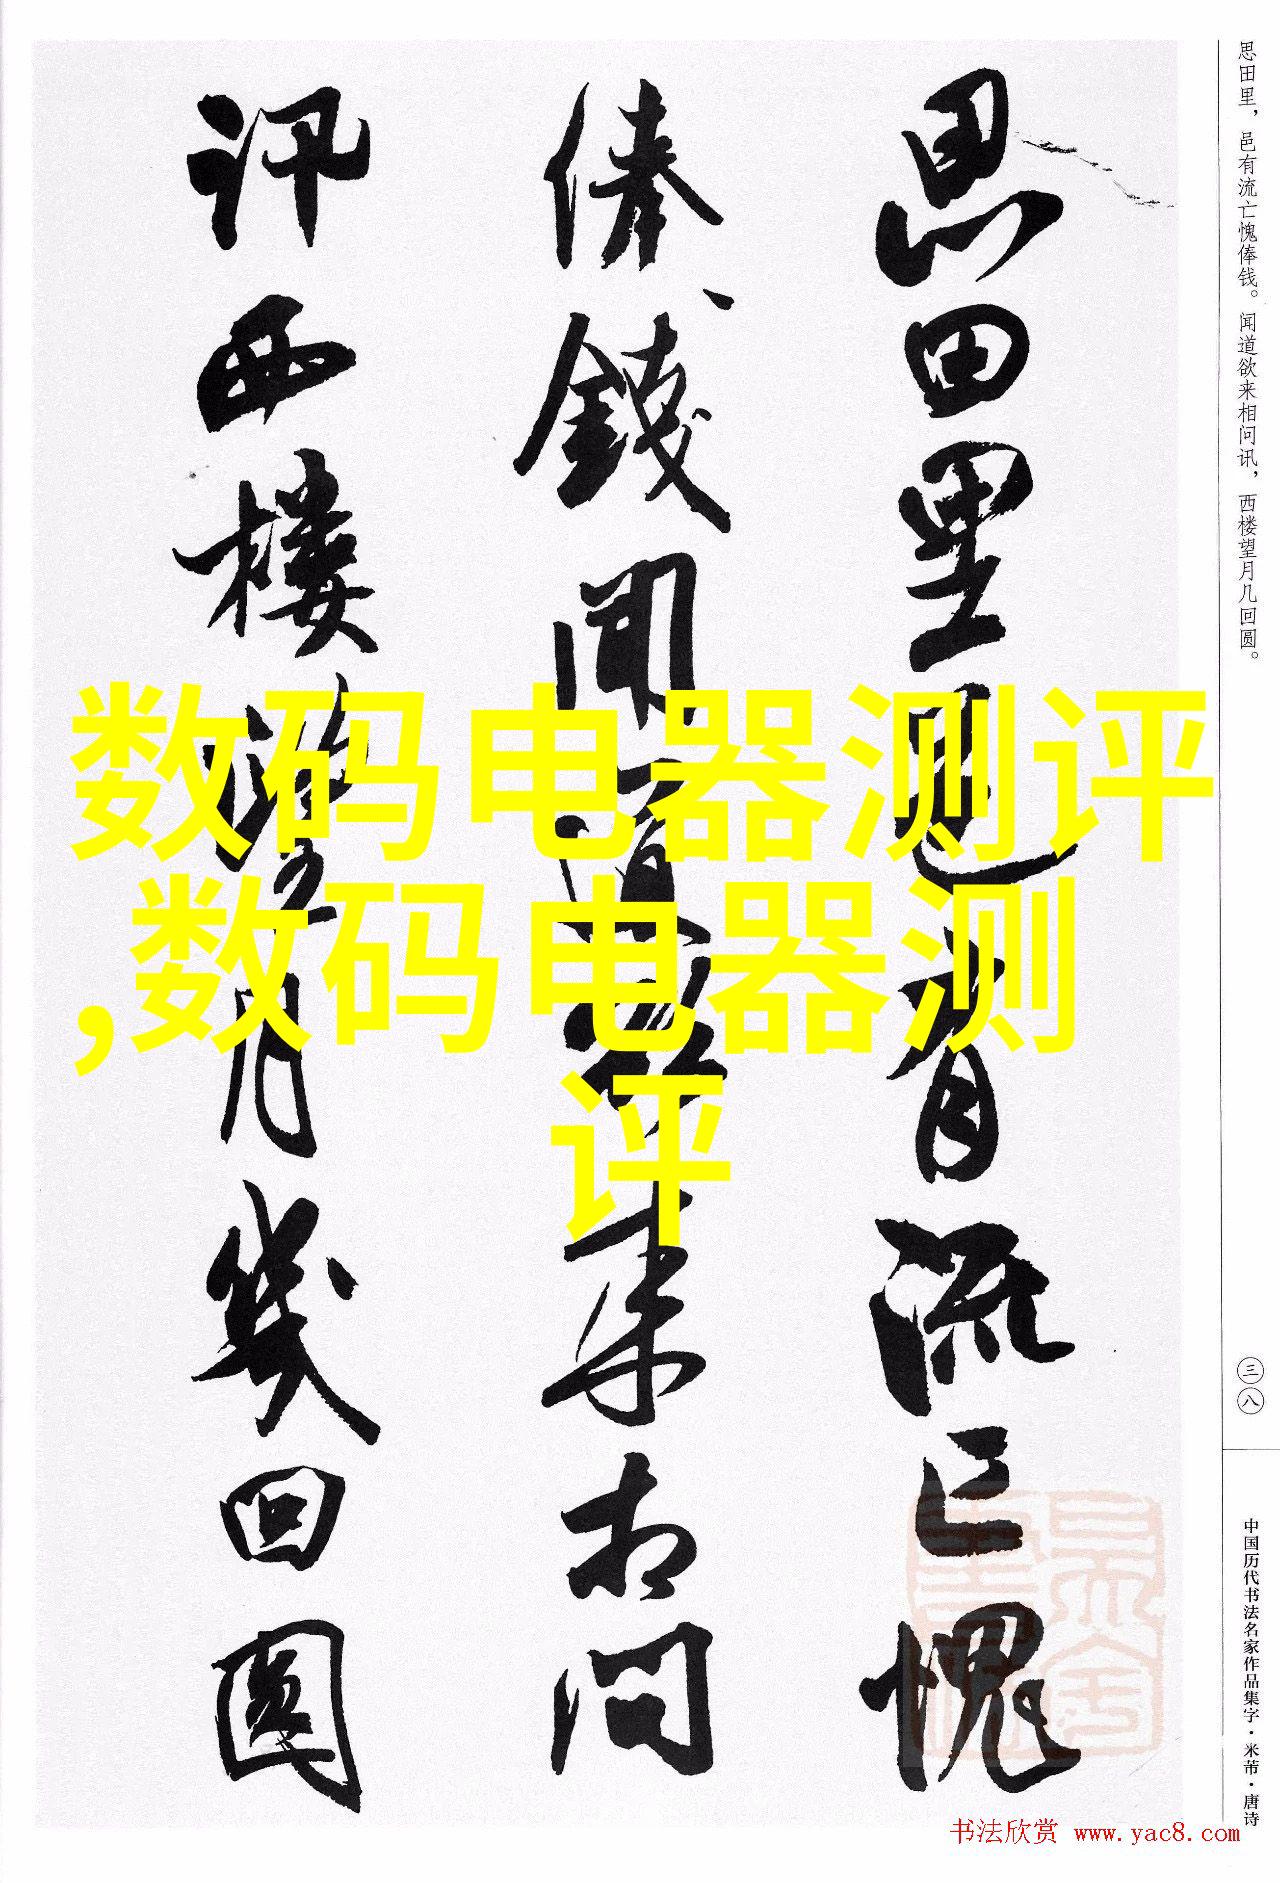 思田里邑有流亡愧
俸钱闻道欲来相问
讯西楼望月几回圆
思田里，邑有流亡愧俸钱。闻道欲来相问讯，西楼望月几回圆。
三八
中国历代书法名家作品集字·米芾·唐诗
数码电器测评
,数码电器测
评
书法欣赏 www.yac8.com